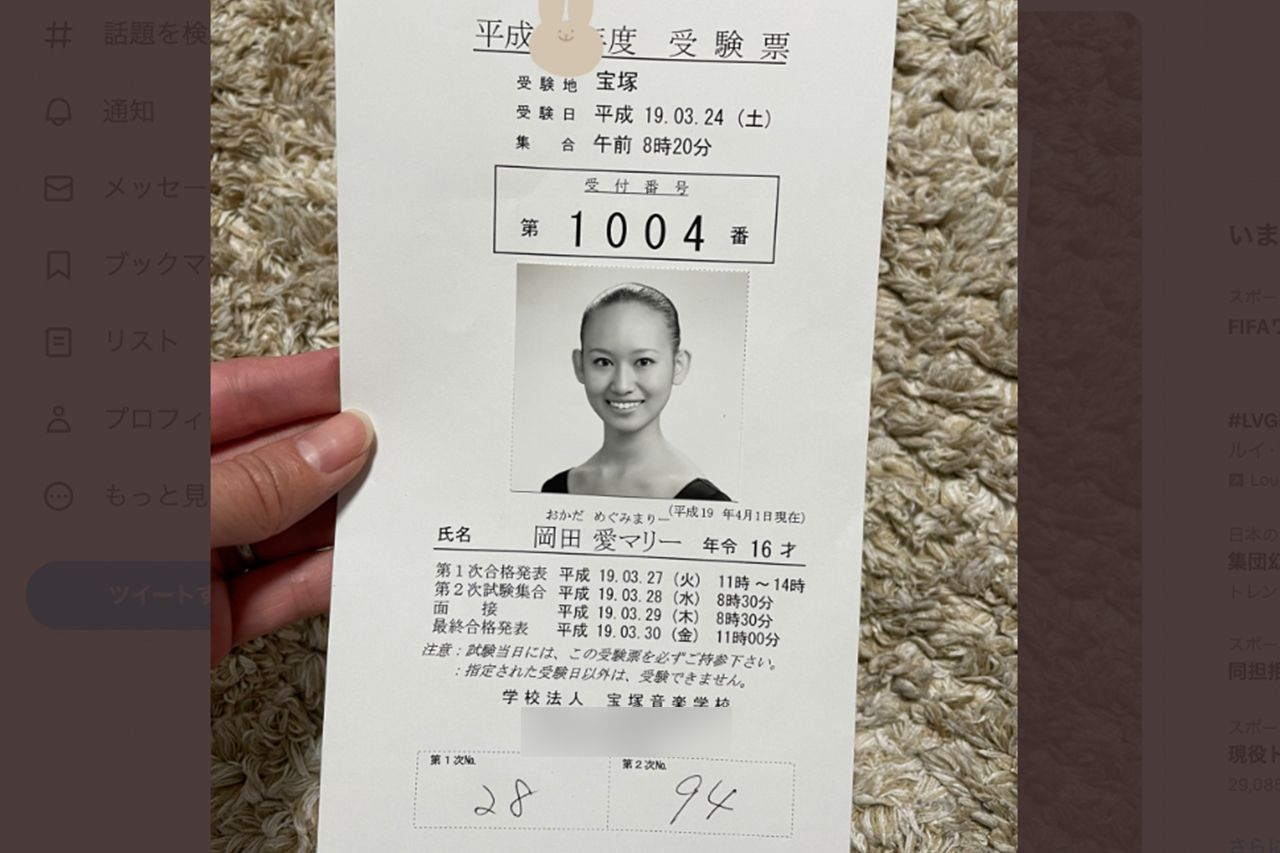 平成 年度 受験票
受験地 宝塚
受験日 平成 19.03.24（土）
集合 午前 8時20分
受付番号
第 1004 番
おかだ めぐみまりー（平成19 年4月1日現在）
氏名 岡田 愛マリー 年令 16 才
第1次合格発表 平成 19.03.27（火） 11時～14時
第2次試験集合 平成 19.03.28（水） 8時30分
面接 平成 19.03.29（木） 8時30分
最終合格発表 平成 19.03.30（金） 11時00分
注意：試験当日には、この受験票を必ずご持参下さい。
：指定された受験日以外は、受験できません。
学校法人 宝塚音楽学校
第1次No. 第2次No.
28 94
話題を検
通知
メッセー
ブックマ
リスト
プロフィ
もっと見
ツイートす
いま
スポー
FIFA
#LVG
ルイ・
Lou
日本の
集団幼
トレン
スポー
同担拒
スポー
現役ド
29,08
さらに